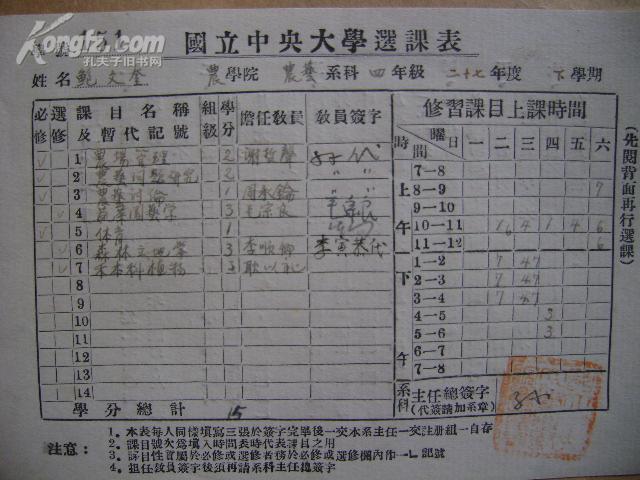 學號 151 國立中央大學選課表
姓名 鮑文奎 農學院 農藝系科 四年級 二十七年度 下學期
必修 選修 課目名稱及暫代記號 組級 學分 擔任教員 教員簽字
1 農場管理 2
2 農藝問題研究 2 〃 〃
3 農藝討論 1 周承鑰
4 蔬菜園藝學 3 毛宗良
5 体育 1
6 森林立地學 3 李順卿 李寅恭代
7 禾本科植物 3 耿以礼
8
9
10
11
12
13
14
學分總計 15
修習課目上課時間
時間 曜日 一 二 三 四 五 六
上午
7—8
8—9 7
9—10
10—11 1 6 4 1 4 6
11—12 6
下午
1—2 7 4 7
2—3 7 4 7
3—4 7 4 7
4—5 3
5—6 3
6—7
7—8
系科主任總簽字
(代簽請加系章)
(先閱背面再行選課)
注意：
1。本表每人同樣填寫三張於簽字完畢後一交本系主任一交註册組一自存
2。課目號次爲填入時間表時代表課目之用
3。課目性質屬於必修或選修者務於必修或選修欄內作一✓記號
4。担任敎員簽字後須再請系科主任總簽字
孔夫子旧书网